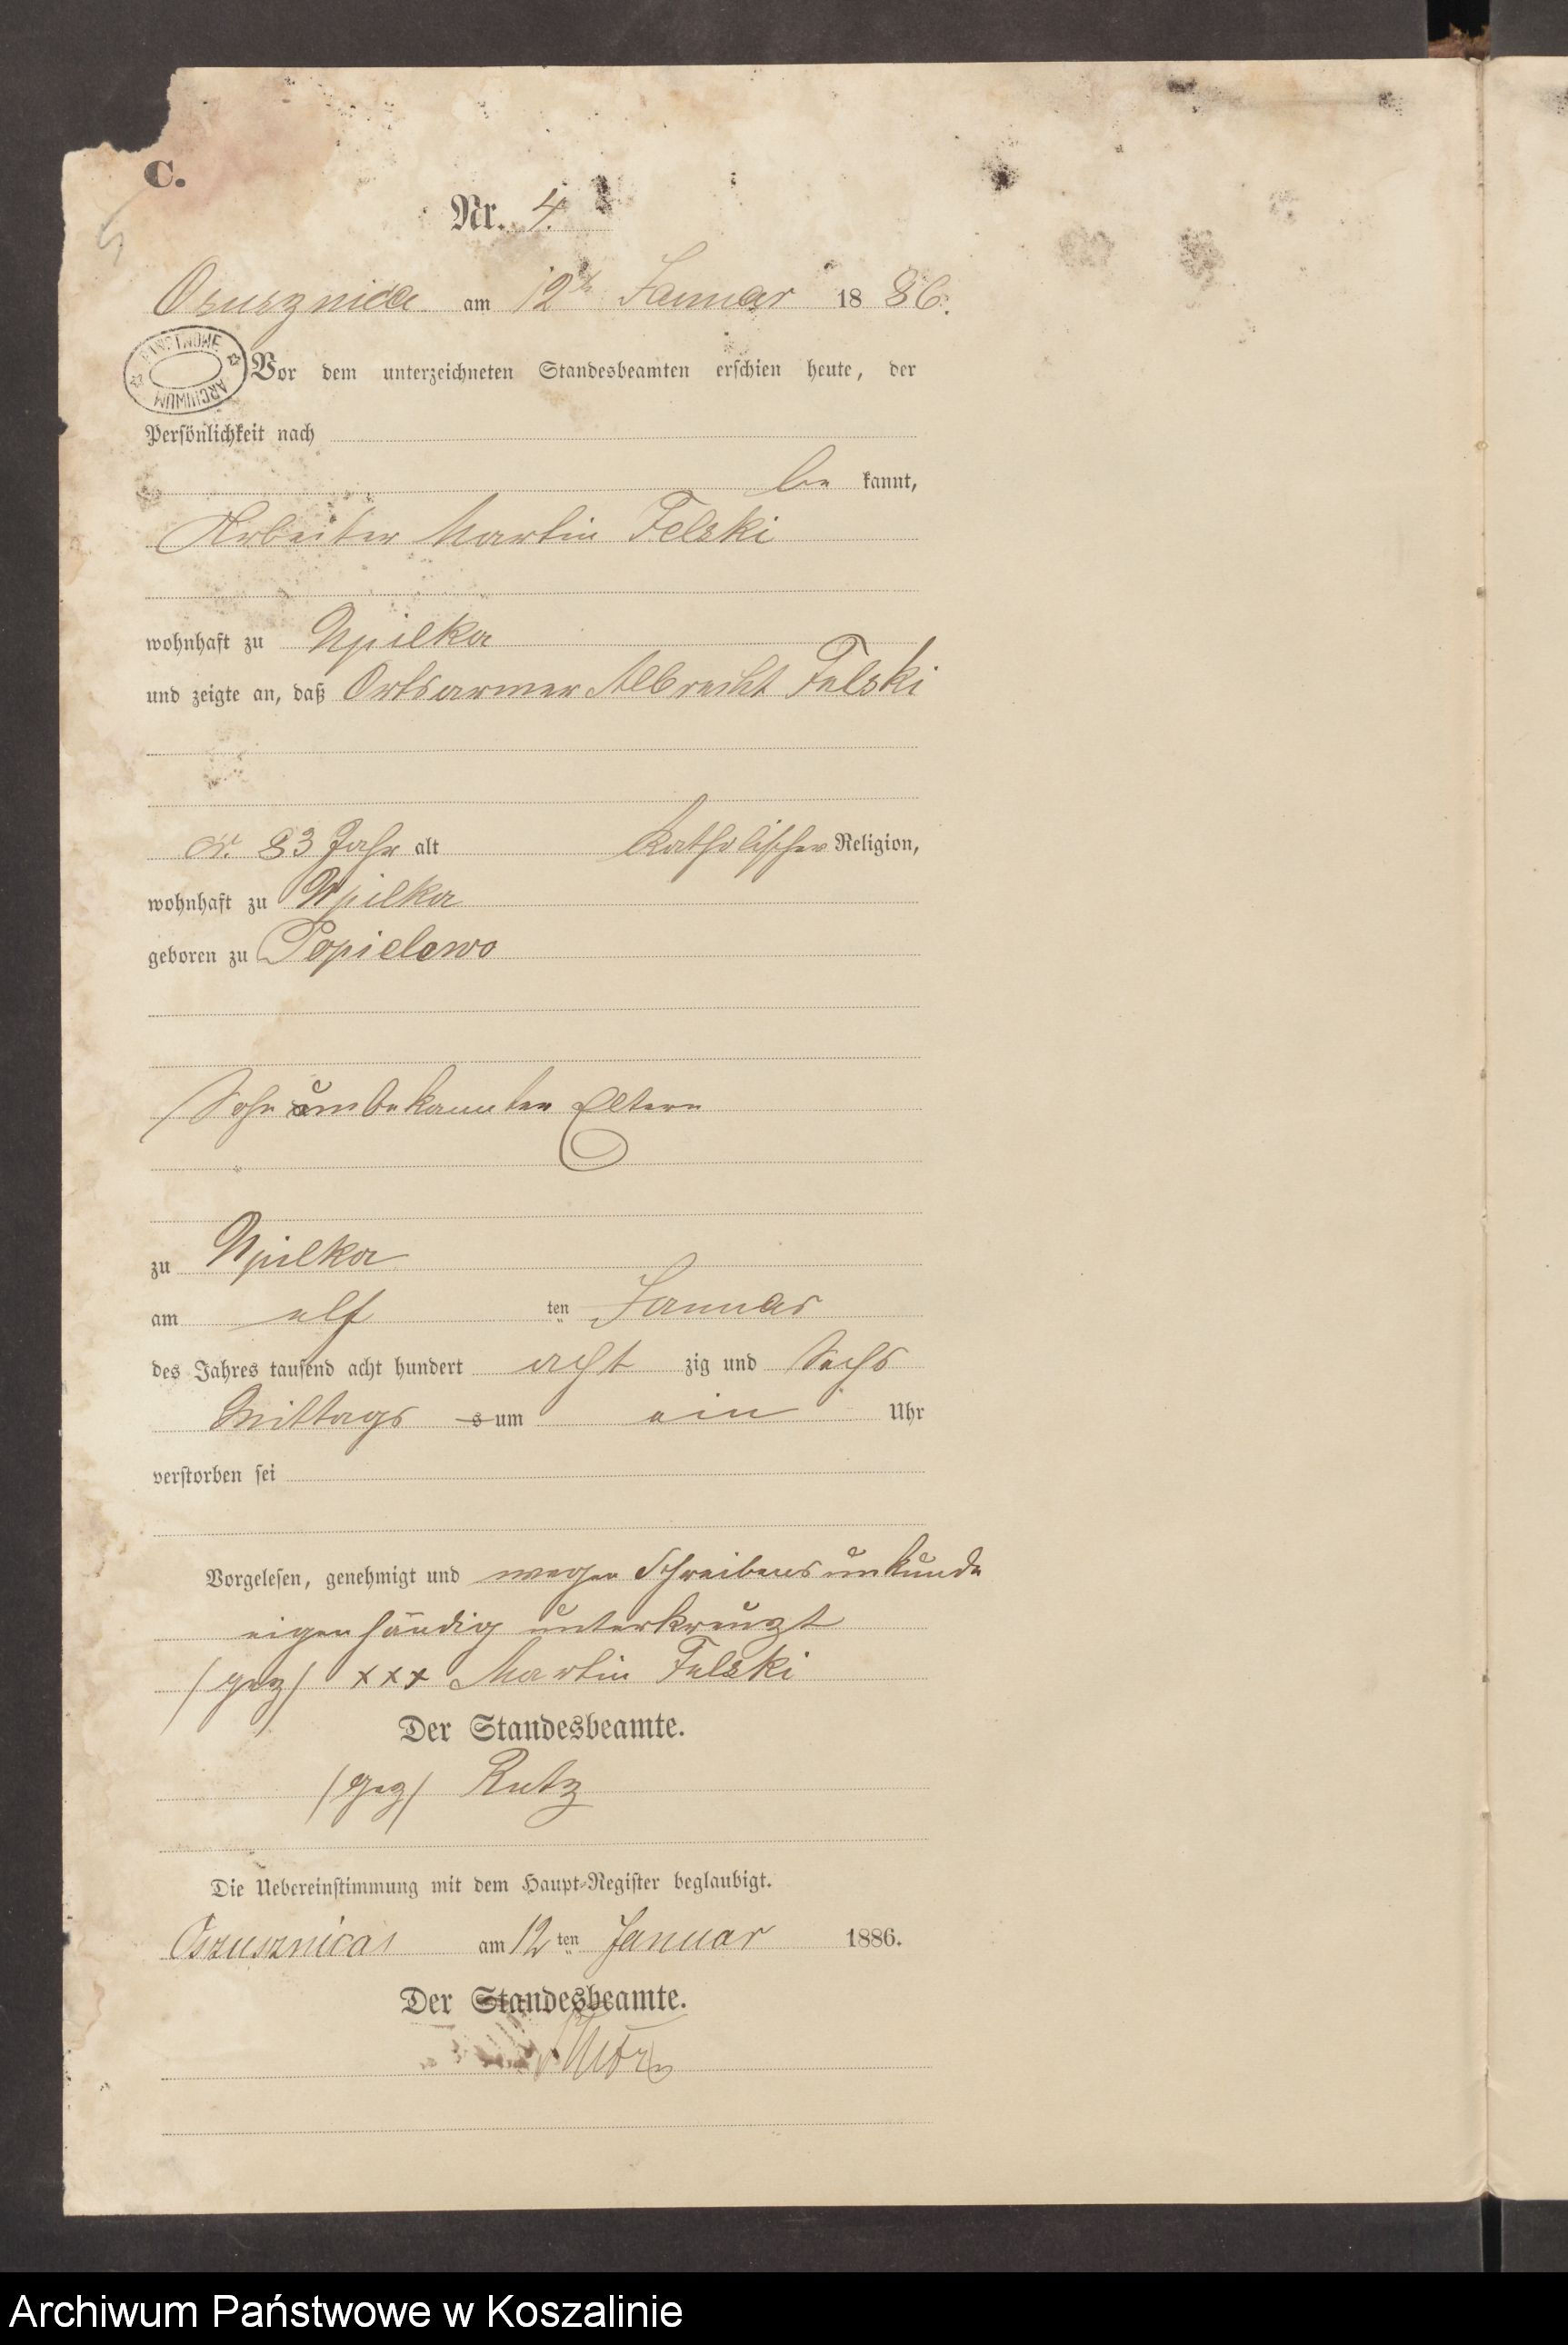 C.
Nr. 4.
Osusznica am 12ten Januar 1886.
PAŃSTWOWE ARCHIWUM
Vor dem unterzeichneten Standesbeamten erschien heute, der
Persönlichkeit nach
be kannt,
Arbeiter Martin Felski
wohnhaft zu Upilka
und zeigte an, daß Ortsarmer Albrecht Felski
cr. 83 Jahr alt katholischer Religion,
wohnhaft zu Upilka
geboren zu Popielewo
Sohn unbekannter Eltern
zu Upilka
am elf ten Januar
des Jahres tausend acht hundert acht zig und Sechs
Mittags s um ein Uhr
verstorben sei
Vorgelesen, genehmigt und wegen Schreibensunkunde
eigenhändig unterkreuzt
(gez) xxx Martin Felski
Der Standesbeamte.
(gez) Rutz
Die Uebereinstimmung mit dem Haupt-Register beglaubigt.
Oszusznica am 12 ten Januar 1886.
Der Standesbeamte.
Archiwum Państwowe w Koszalinie